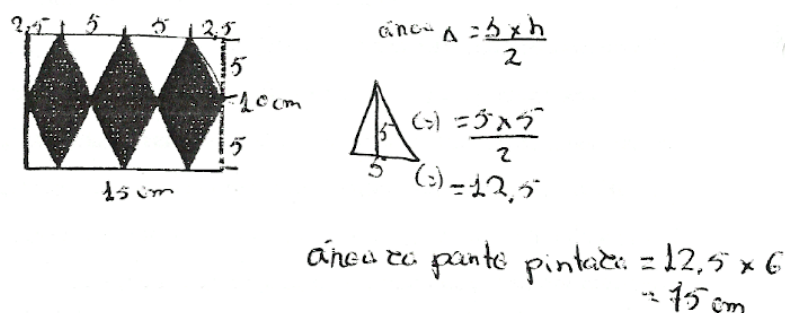 2,5 5 5 2,5
5
10 cm
5
15 cm
área Δ = b x h
2
5
5
(=) = 5 x 5
2
(=) = 12,5
área da parte pintada = 12,5 x 6
= 75 cm